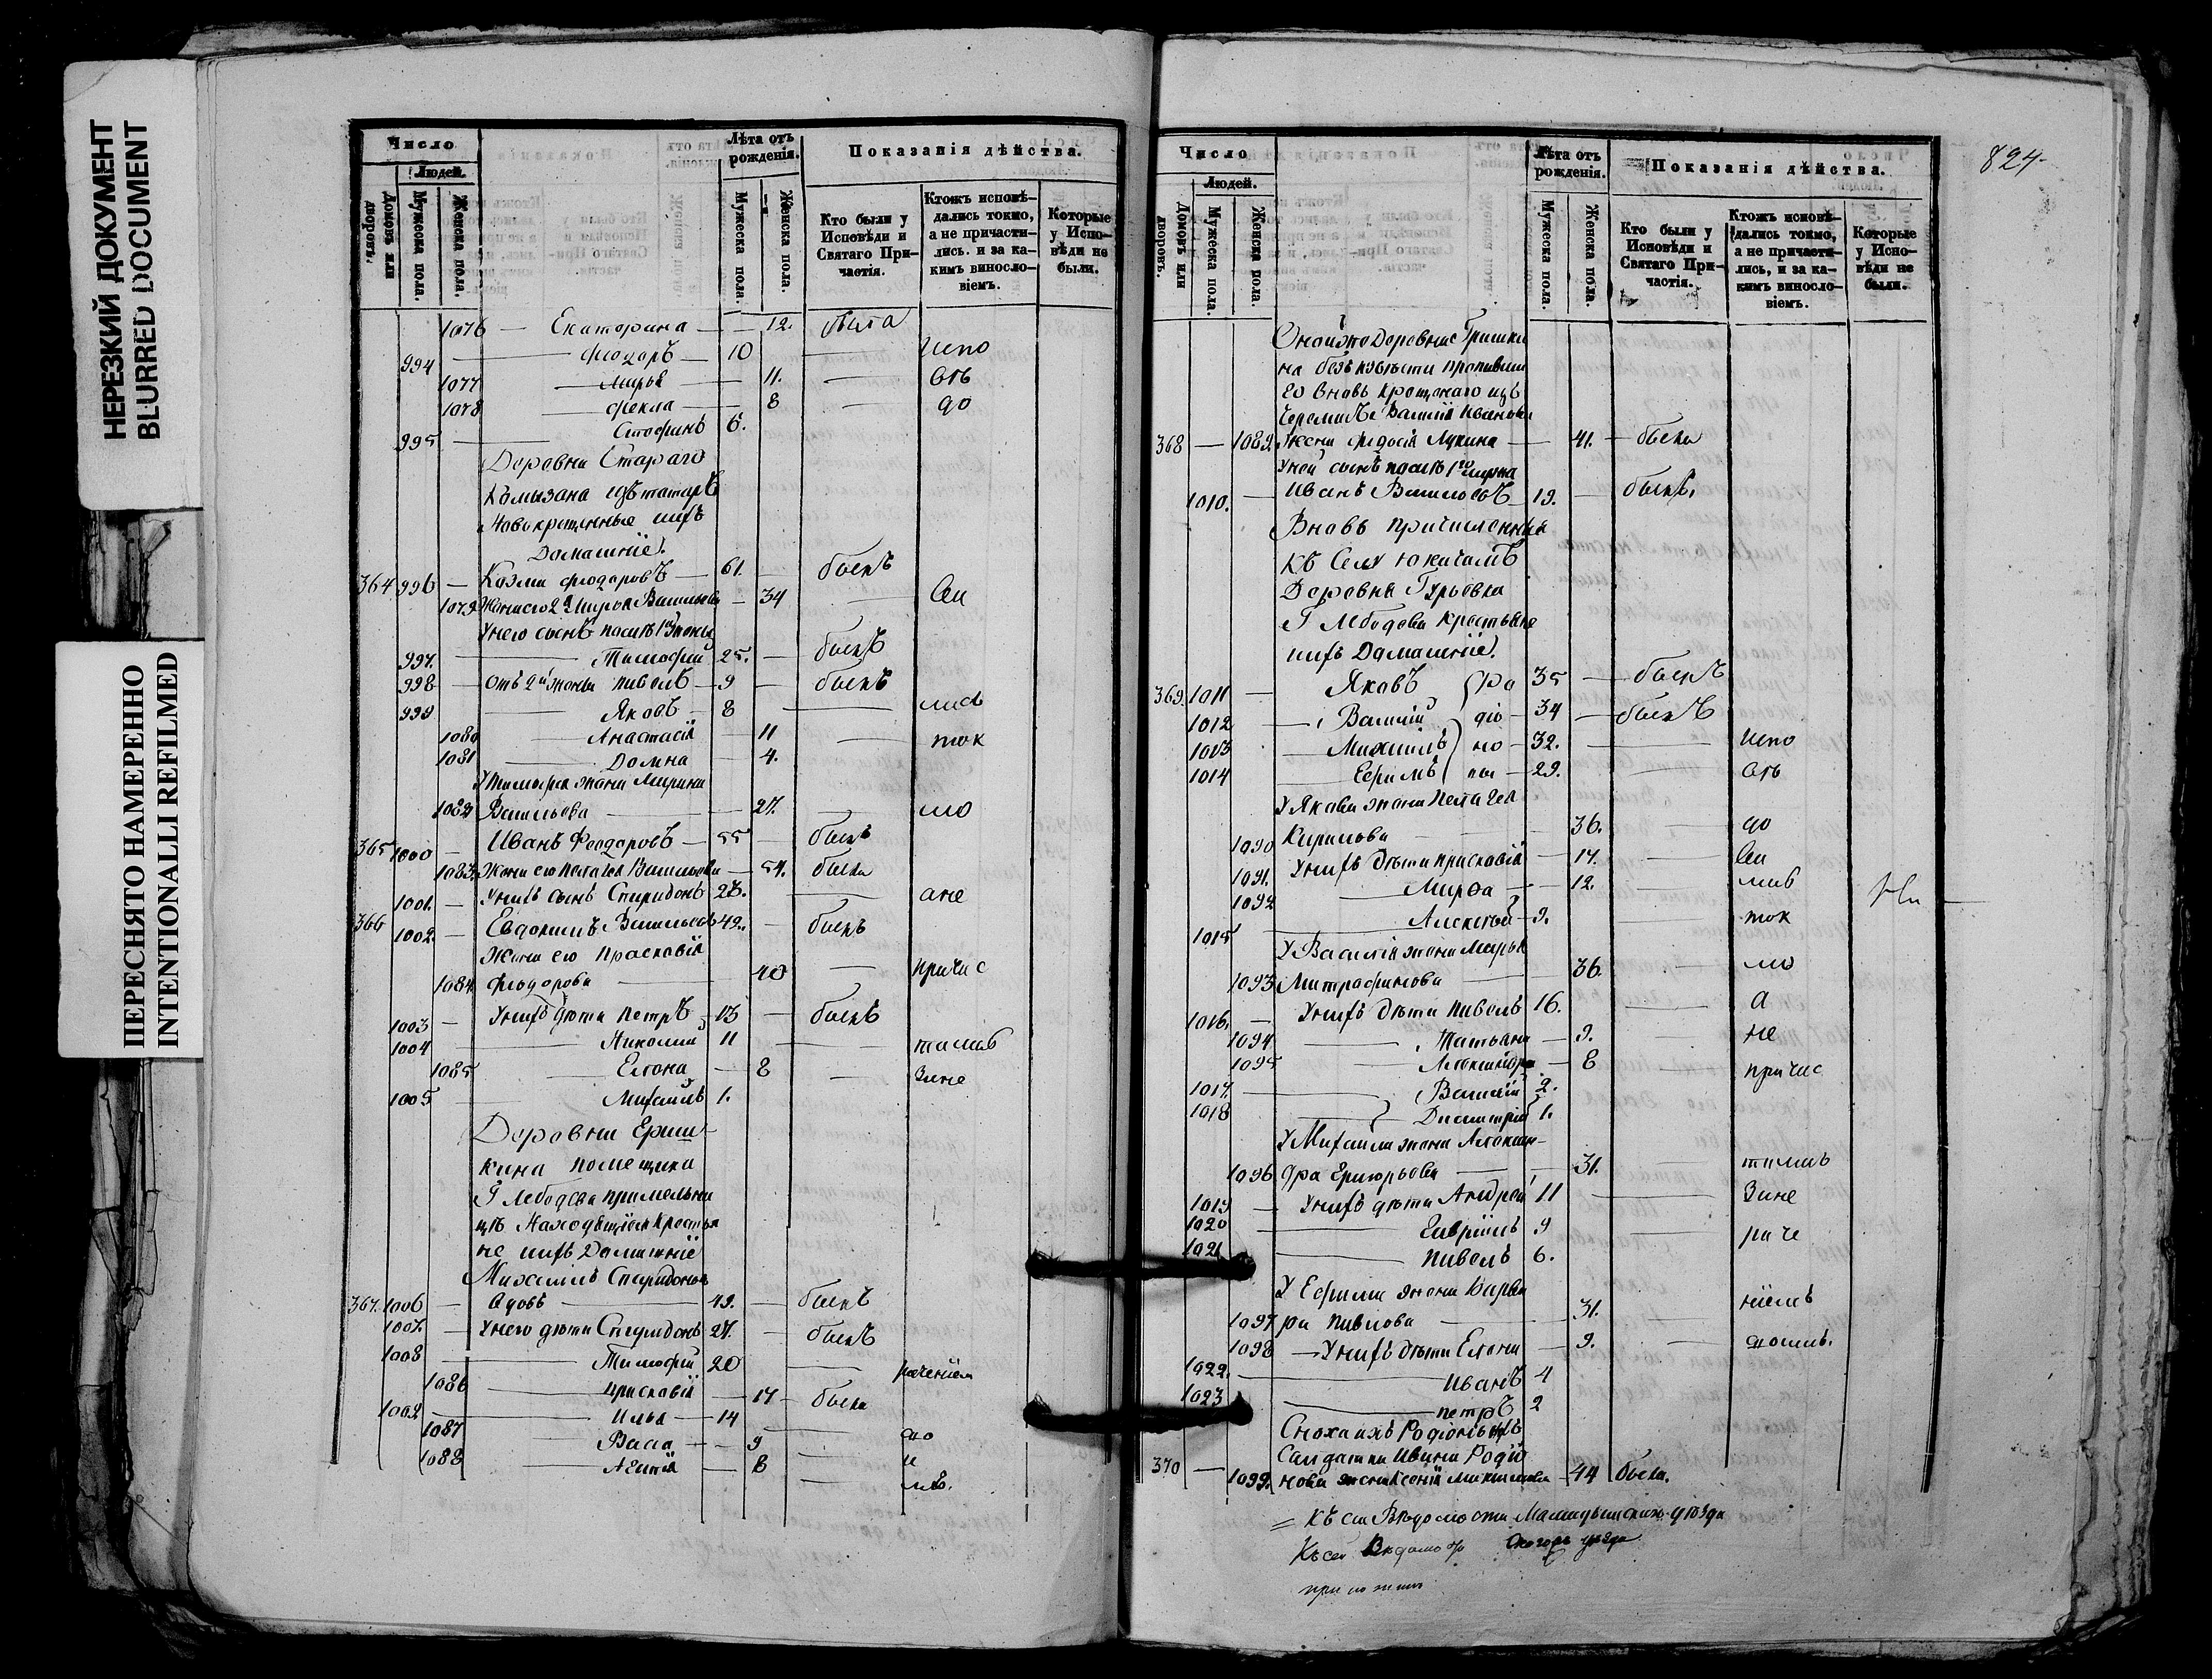 НЕРЕЗКИЙ ДОКУМЕНТ
BLURRED DOCUMENT
ПЕРЕСНЯТО НАМЕРЕННО
INTENTIONALLI REFILMED
Число
Людей.
Домовъ или дворовъ.
Мужеска пола.
Женска пола.
Лѣта отъ рожденія.
Мужеска пола.
Женска пола.
Показанія дѣйства.
Кто были у Исповѣди и Святаго При-частія.
Ктожъ исповѣ-дались токмо, а не причасти-лись. и за ка-кимъ винослo-віемъ.
Которые у Испо-вѣди не были.
1076 — Екатерина — 12. была
994 — Феодоръ — 10 — испо
1077 — Марья — 11. — вѣ
1078 — Фекла — 8 — до
995 — 6.
Деревни Стараго
Камызана изъ татаръ
Новокрещенные и ихъ
Домашніе.
364 996 — Козма Феодоровъ — 61. былъ
1079 Жена его 2я Марья Васильева — 34 — ли
У него сынъ послѣ 1й жены
997. — Тимофей 25. — былъ
998 — Отъ 2й жены Павелъ — 9 — былъ
999 — Яковъ — 8 — лись
1080 — Анастасія — 11 — ток
1081 — Домна — 4.
У Тимофея жена Марина
1082 Васильева — 27. — мо
365 1000 — Иванъ Феодоровъ — 55 — былъ
1083. Жена его Пелагея Васильева — 54. была
1001. — У нихъ сынъ Спиридонъ 28. — а не
366 1002. — Евдокимъ Васильевъ 49. — былъ
Жена его Прасковія
1084. Феодорова — 40 — причас
1003 — У нихъ дѣти Петръ — 13 — былъ
1004 — Николай 11 — тилив
1085 — Елена — 8 — за не
1005 — Михаилъ 1.
Деревни Ериш-
кина помещика
Г. Лебедева при мельни
цѣ находящіеся крестья
не и ихъ Домашніе
Михаилъ Спиридонов
367. 1006 — вдовъ — 49. — былъ
1007. — У него дѣти Спиридонъ 27. — былъ
1008 — Тимофей 20 — рачением
1086 — Прасковія — 17 — была
1009 — Илья — 14
1087 — Васса — 9 — по
1088 — Агапія — 8
824
Число
Людей.
Домовъ или дворовъ.
Мужеска пола.
Женска пола.
Лѣта отъ рожденія.
Мужеска пола.
Женска пола.
Показанія дѣйства.
Кто были у Исповѣди и Святаго При-частія.
Ктожъ исповѣ-дались токмо, а не причасти-лись, и за ка-кимъ винослo-віемъ.
Которые у Испо-вѣди не были.
Онойже Деревни Гришки
на безъ извѣсти пропавша
го вновь крещенаго изъ
Черемисъ Василія Иванова
368 — 1089 Жена Федосія Лукина — 41. — была
У ней сынъ послѣ 1го мужа
1010. — Иванъ Васильевъ — 19. — былъ.
Вновь причисленныя
къ Селу Юкачамъ
Деревни Гурьевка
Г. Лебедева крестьяне
и ихъ Домашніе.
369. 1011 — Яковъ Ро 35 — былъ
1012 — Василій діо — 34 — былъ
1013 — Михаилъ но — 32. — испо
1014 — Ефимъ вы — 29. вѣ
У Якова жена Пелагея
1090 Кирилова — 36. — до
1091. У нихъ дѣти Прасковія — 14. — ли
1092 — Марфа — 12. — лив
1015 — Алексѣй — 9. — ток
У Василія жена Марья
1093 Митрофанова — 36. — мо
1016. — У нихъ дѣти Павелъ 16. — а
1094 — Татьяна — 9. — не
1095 — Александра — 8 — причас
1017. — Василій 2.
1018 — Димитрій 1.
У Михаила жена Алексан-
1096 дра Григорьева — 31. — тилив
1019 — У нихъ дѣти Андрей 11 — за не
1020 — Гаврилъ 9 — раче
1021 — Павелъ 6.
У Ефима жена Варва
1097 ра Павлова — 31. — ніемъ
1098 — У нихъ дѣти Елена — 9.
1022. — Иванъ 4
1023 — Петръ 2
Сноха ихъ
Салдатки Ивана Родіо
370 — 1099. нова жена Ксенія — 44 была.
къ сей Вѣдомости Мамадышскаго уѣзда
Къ сей